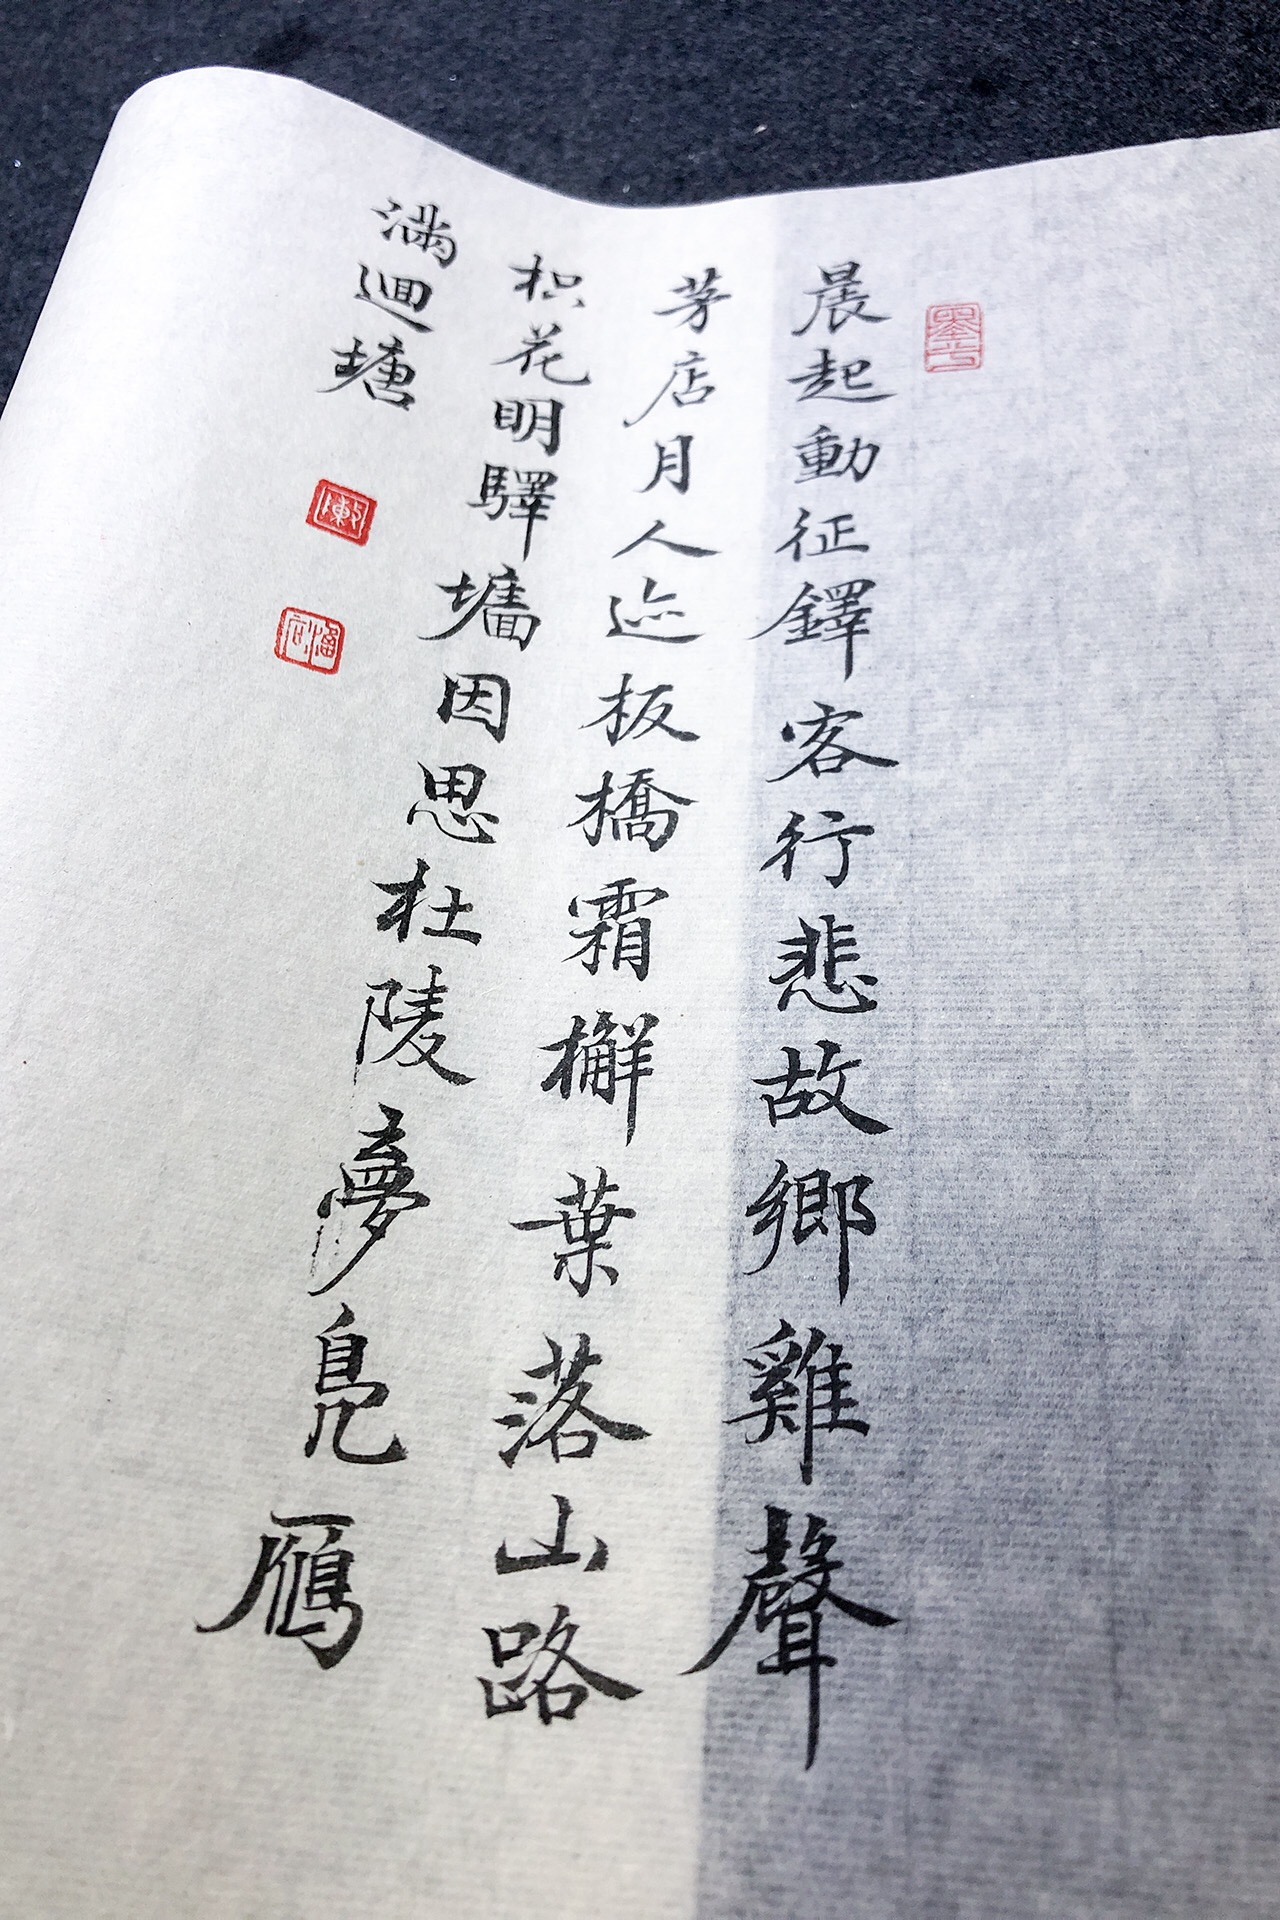 晨起動征鐸客行悲故鄉雞聲
茅店月人迹板橋霜檞葉落山路
枳花明驛墻因思杜陵夢鳧鴈
滿迴塘